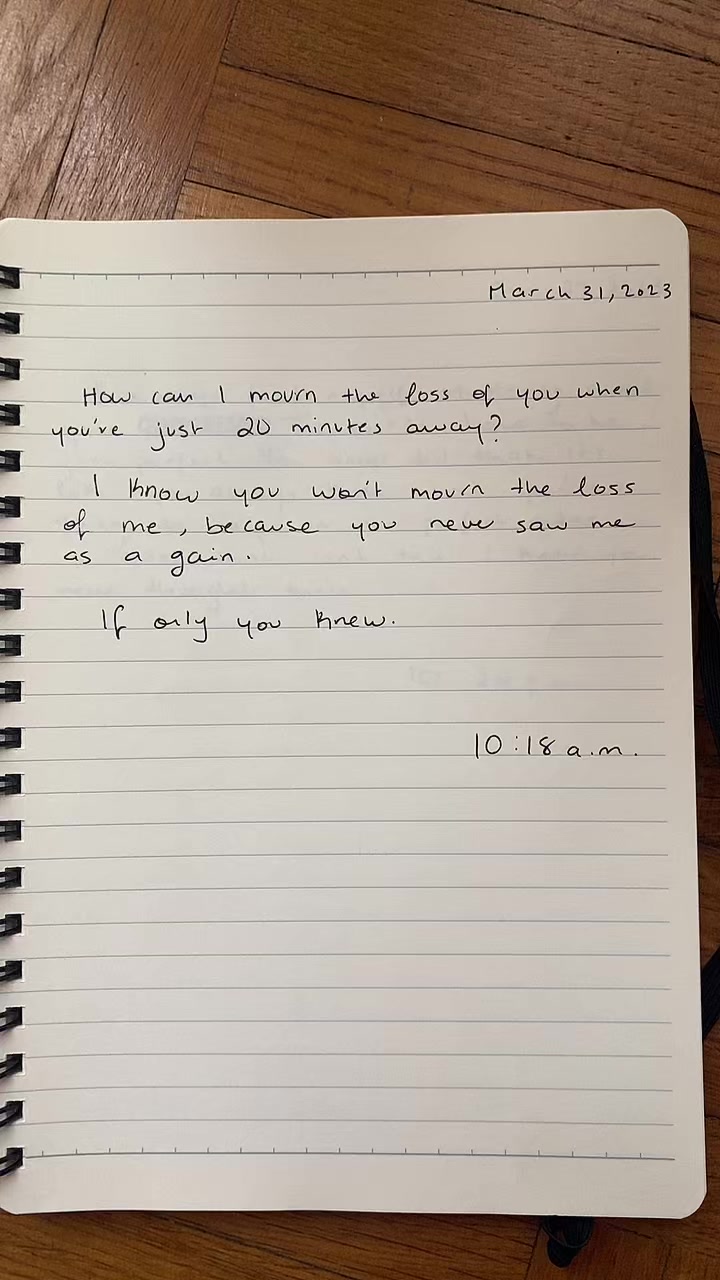 March 31, 2023
How can I mourn the loss of you when
you've just 20 minutes away?
I know you won't mourn the loss
of me, because you never saw me
as a gain.
If only you knew.
10:18 a.m.